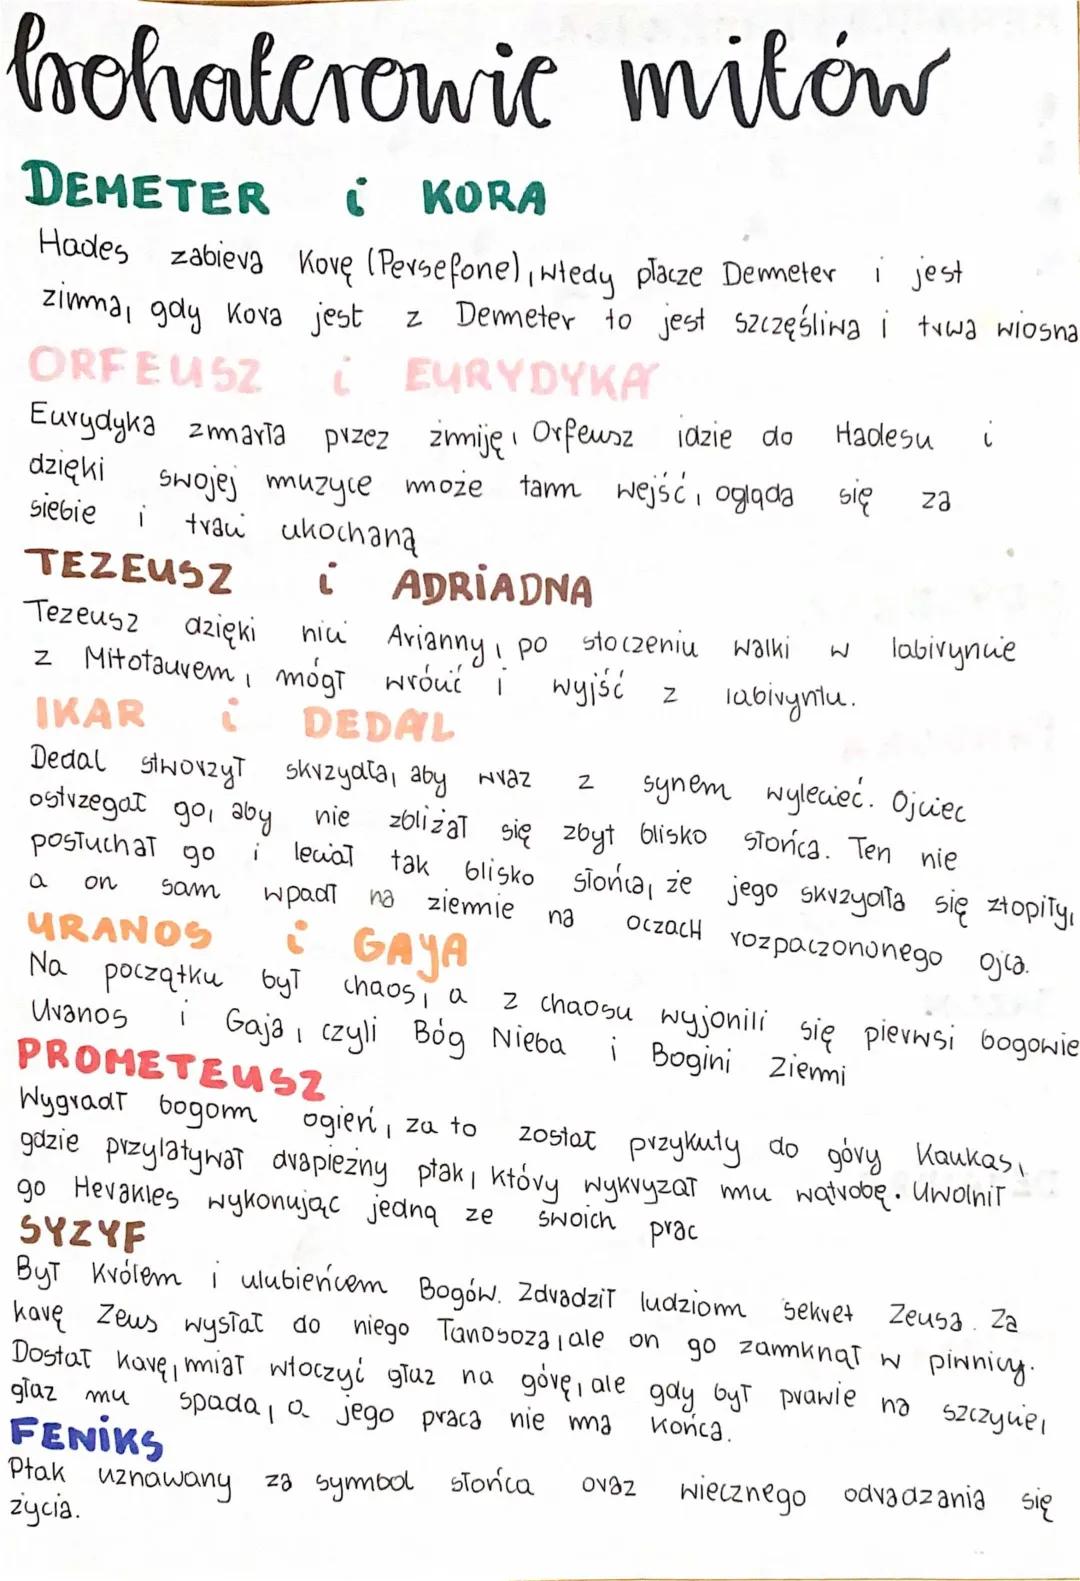 bohaterowie mitów
DEMETER i KORA
Hades zabiera Korę (Persefone), wtedy płacze Demeter i jest
zimna, gdy Kora jest z Demeter to jest szczęśliwa i trwa wiosna
ORFEUSZ i EURYDYKA
Eurydyka zmarła przez żmiję, Orfeusz idzie do Hadesu i
dzięki swojej muzyce może tam wejść, ogląda się za
siebie i traci ukochaną
TEZEUSZ i ADRIADNA
Tezeusz dzięki nici Arianny, po stoczeniu walki w labiryncie
z Mitotaurem, mógł wrócić i wyjść z labiryntu.
IKAR i DEDAL
Dedal stworzył skrzydła, aby wraz z synem wylecieć. Ojciec
ostrzegał go, aby nie zbliżał się zbyt blisko słońca. Ten nie
posłuchał go i leciał tak blisko słońca, że jego skrzydła się ztopiły,
a on sam wpadł na ziemie na oczach rozpaczononego ojca.
URANOS i GAYA
Na początku był chaos, a z chaosu wyjonili się pierwsi bogowie
Uranos i Gaja, czyli Bóg Nieba i Bogini Ziemi
PROMETEUSZ
Wygradł bogom ogień, za to został przykuty do góry Kaukas,
gdzie przylatywał drapieżny ptak, który wykryzał mu wątrobę. Uwolnił
go Herakles wykonując jedną ze swoich prac
SYZYF
Był Królem i ulubieńcem Bogów. Zdradził ludziom sekret Zeusa. Za
karę Zeus wysłał do niego Tanosoza, ale on go zamknął w piwnicy.
Dostał karę, miał wtoczyć głaz na górę, ale gdy był prawie na szczycie,
głaz mu spada, a jego praca nie ma końca.
FENIKS
Ptak uznawany za symbol słońca oraz wiecznego odradzania się
życia.